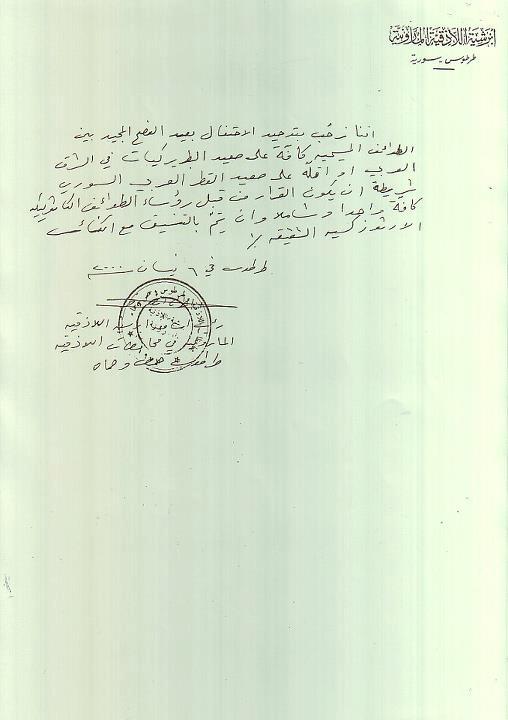 ابرشية اللاذقية المارونية
طرطوس - سورية
اننا نرحّب بتوحيد الاحتفال بعيد الفصح المجيد بين
الطوائف المسيحية كافة على صعيد البطريركيات في الشرق
العربي او اقله على صعيد القطر العربي السوري
شريطة ان يكون القرار من قبل رؤساء الطوائف الكاثوليكية
كافة واحدا وشاملا وان يتمّ بالتنسيق مع الكنائس
الارثوذكسية الشقيقة /.
طرطوس في ٦ نيسان ٢٠٠٠
اللاذقية
الماروني في محافظات اللاذقية
طرطوس حمص وحماه